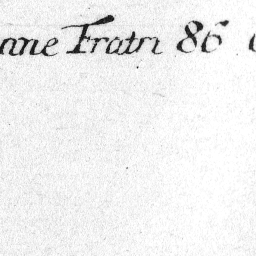 ane Fratri 86